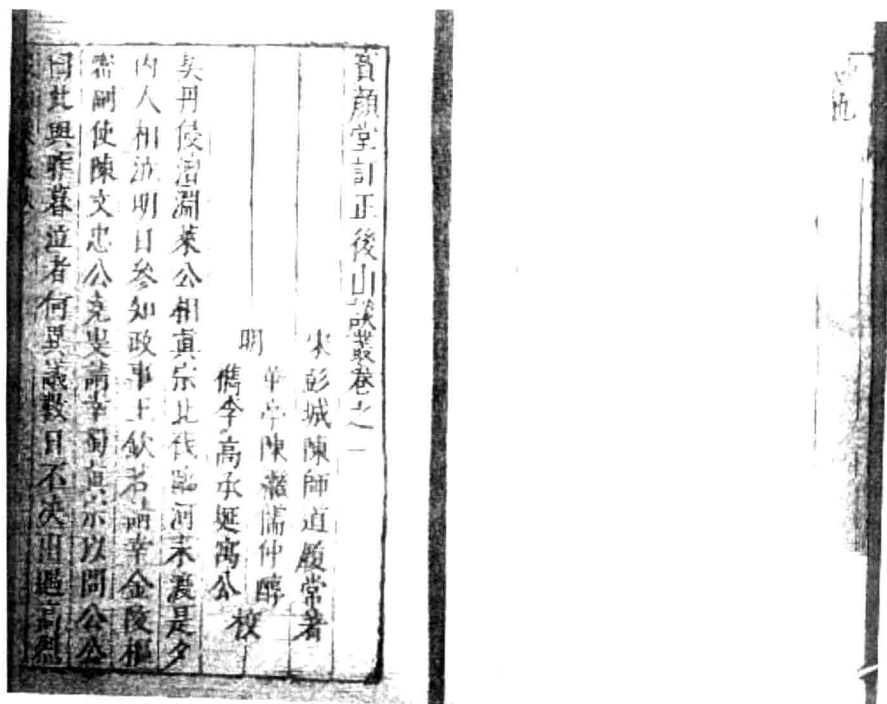 寳顔堂訂正後山談叢卷之一
宋彭城陳師道履常著
明 華亭陳繼儒仲醇
檇李高承埏寓公 校
契丹侵澶淵萊公相真宗北伐臨河未渡是夕
内人相泣明日參知政事王欽若請幸金陵樞
密副使陳文忠公堯叟請幸蜀真宗以問公公
曰此與昨暮泣者何異議數日不決出遇高烈